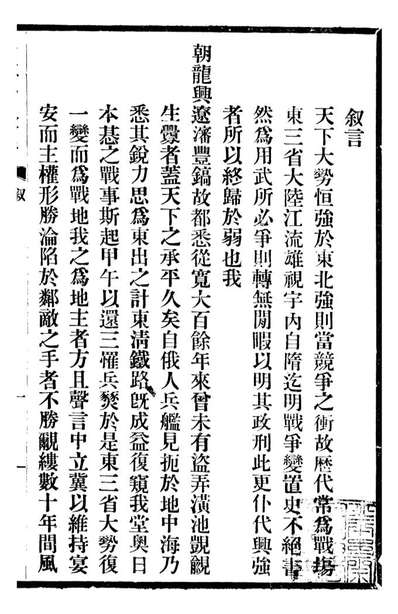 叙言
天下大勢恒強於東北強則當競爭之衝故歷代常爲戰場
東三省大陸江流雄視宇內自隋迄明戰爭變置史不絕書
然爲用武所必爭則轉無閒暇以明其政刑此更仆代興強
者所以終歸於弱也我
朝龍興遼瀋豐鎬故都悉從寬大百餘年來曾未有盜弄潢池覬覦
生釁者蓋天下之承平久矣自俄人兵艦見扼於地中海乃
悉其銳力思爲東出之計東淸鐵路旣成益復窺我堂奧日
本惎之戰事斯起甲午以還三罹兵燹於是東三省大勢復
一變而爲戰地我之爲地主者方且聲言中立冀以維持宴
安而主權形勝淪陷於鄰敵之手者不勝覼縷數十年間風
叙
一